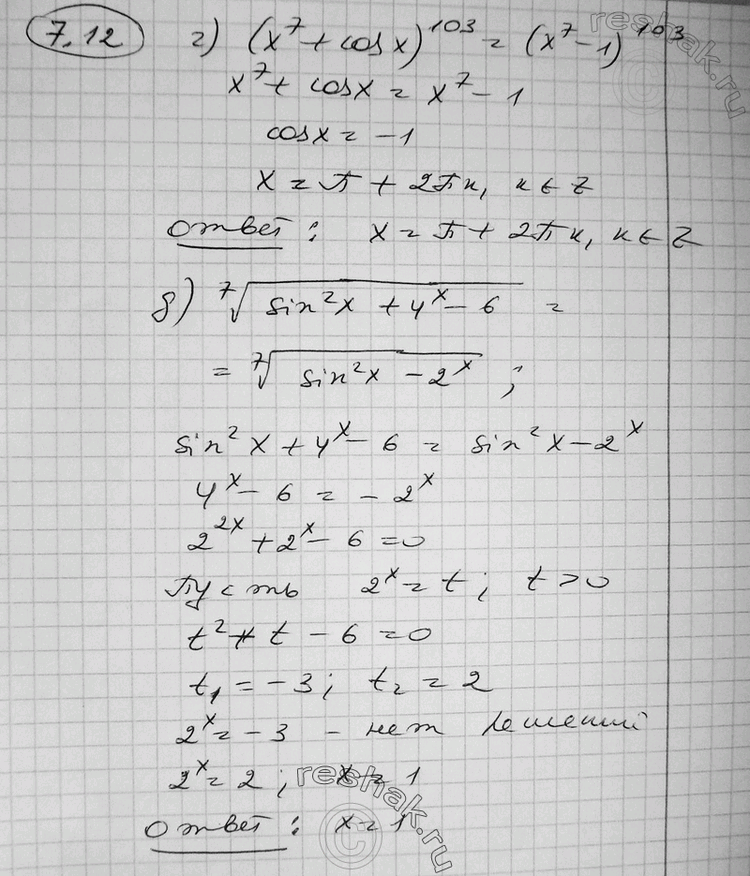 7.12 г) (x⁷ + cos x)¹⁰³ = (x⁷ - 1)¹⁰³
x⁷ + cos x = x⁷ - 1
cos x = -1
x = π + 2πn, n ∈ Z
Ответ: x = π + 2πn, n ∈ Z
д) ⁷√(sin²x + 4ˣ - 6) =
= ⁷√(sin²x - 2ˣ) ;
sin²x + 4ˣ - 6 = sin²x - 2ˣ
4ˣ - 6 = -2ˣ
2²ˣ + 2ˣ - 6 = 0
Пусть 2ˣ = t ; t > 0
t² + t - 6 = 0
t₁ = -3 ; t₂ = 2
2ˣ = -3 - нет решений
2ˣ = 2 ; x = 1
Ответ : x = 1
reshak.ru
reshak.ru